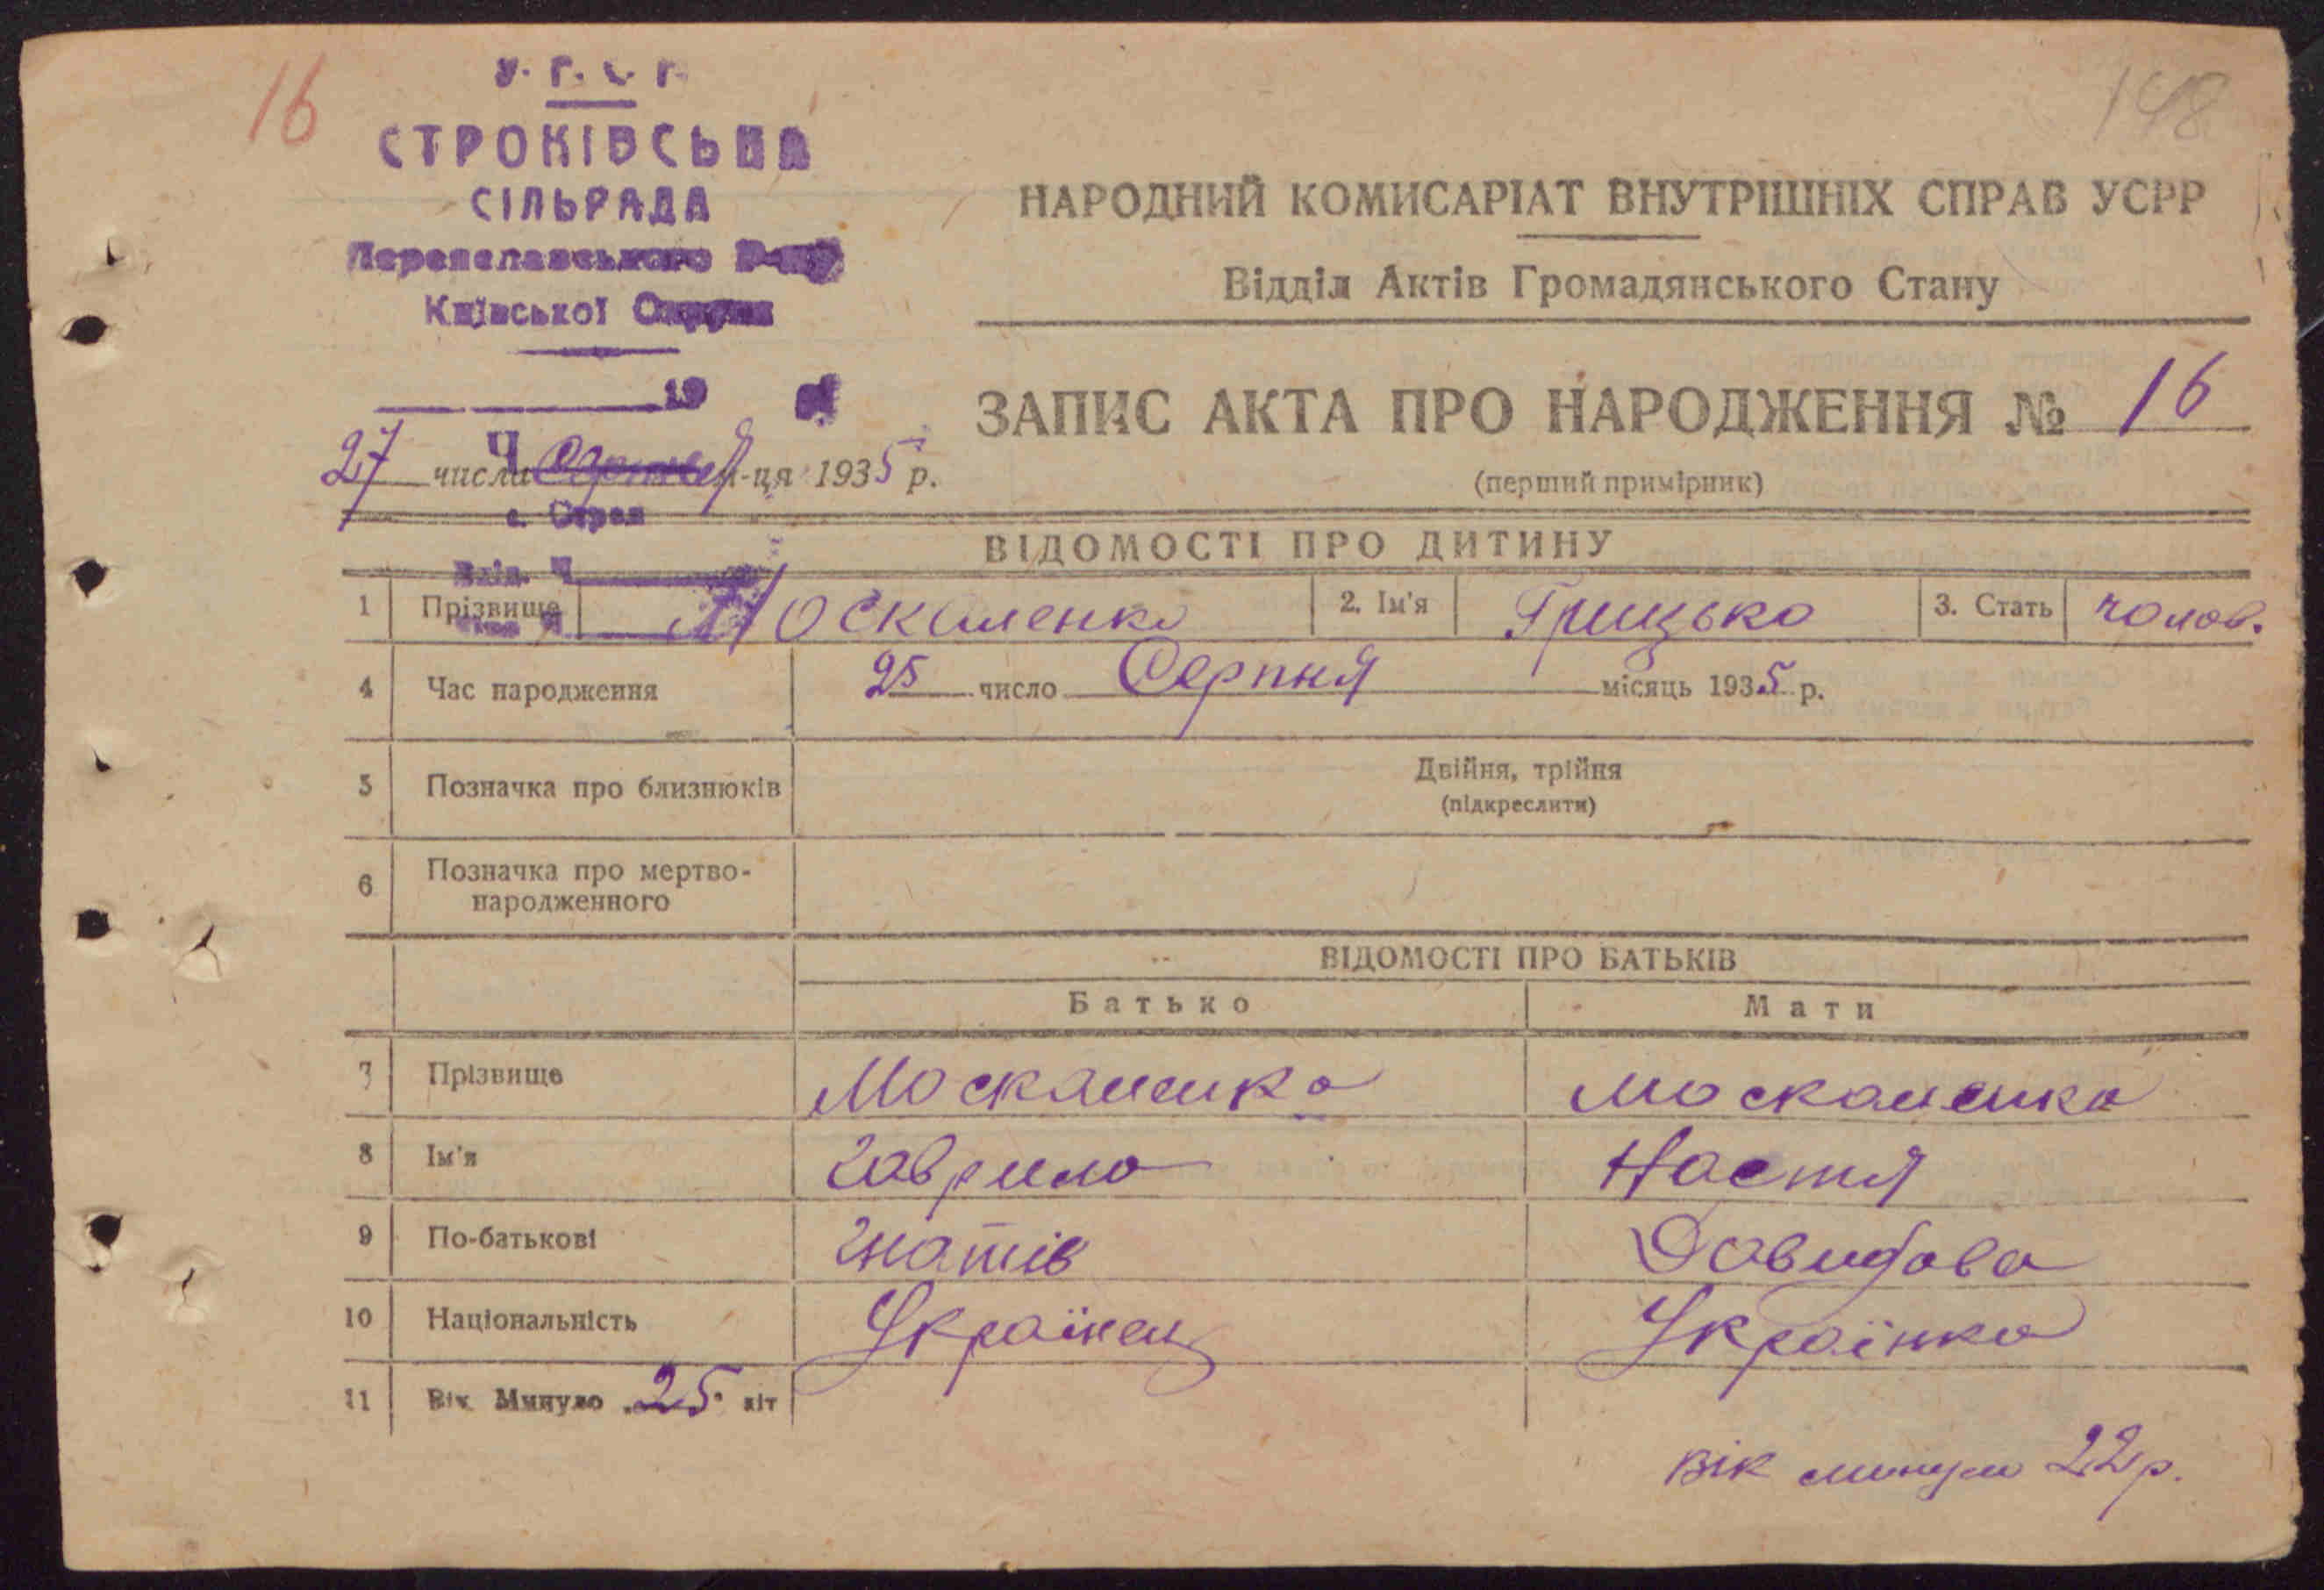 16
148
У. Р. С. Р.
СТРОКІВСЬКА
СІЛЬРАДА
Переяславського
Київської Округи
19
НАРОДНИЙ КОМИСАРІАТ ВНУТРІШНІХ СПРАВ УСРР
Відділ Актів Громадянського Стану
ЗАПИС АКТА ПРО НАРОДЖЕННЯ № 16
(перший примірник)
27 числа Серпня м-ця 1935 р.
ВІДОМОСТІ ПРО ДИТИНУ
1 Прізвище Москаленко 2. Ім'я Грицько 3. Стать чолов.
4 Час народження 25 число Серпня місяць 1935 р.
5 Позначка про близнюків Двійня, трійня
(підкреслити)
6 Позначка про мертво-
народженного
ВІДОМОСТІ ПРО БАТЬКІВ
Батько Мати
7 Прізвище Москаленко Москаленко
8 Ім'я Гаврило Настя
9 По-батькові Гнатів Давидова
10 Національність Українец Українка
11 Вік Минуло 25 літ
Вік минуло 22 р.